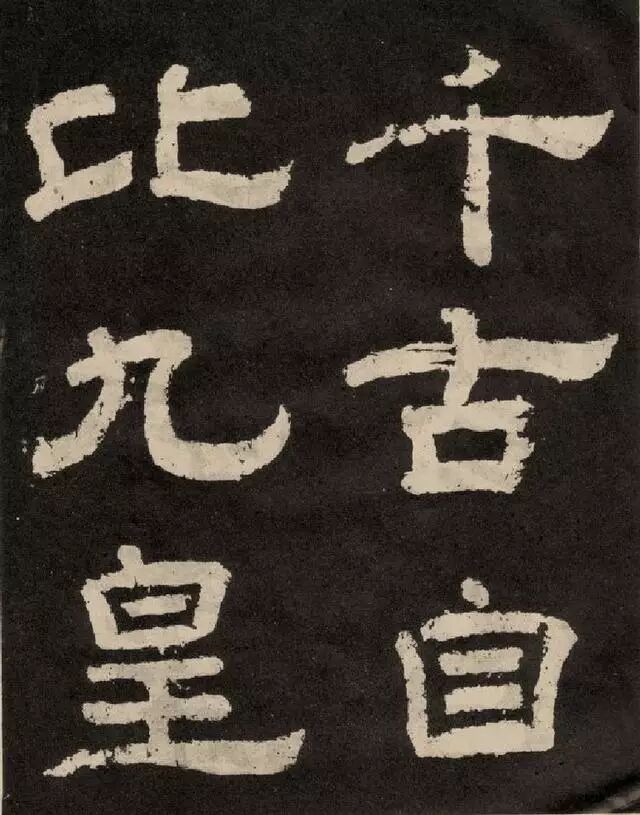 千古自
比九皇